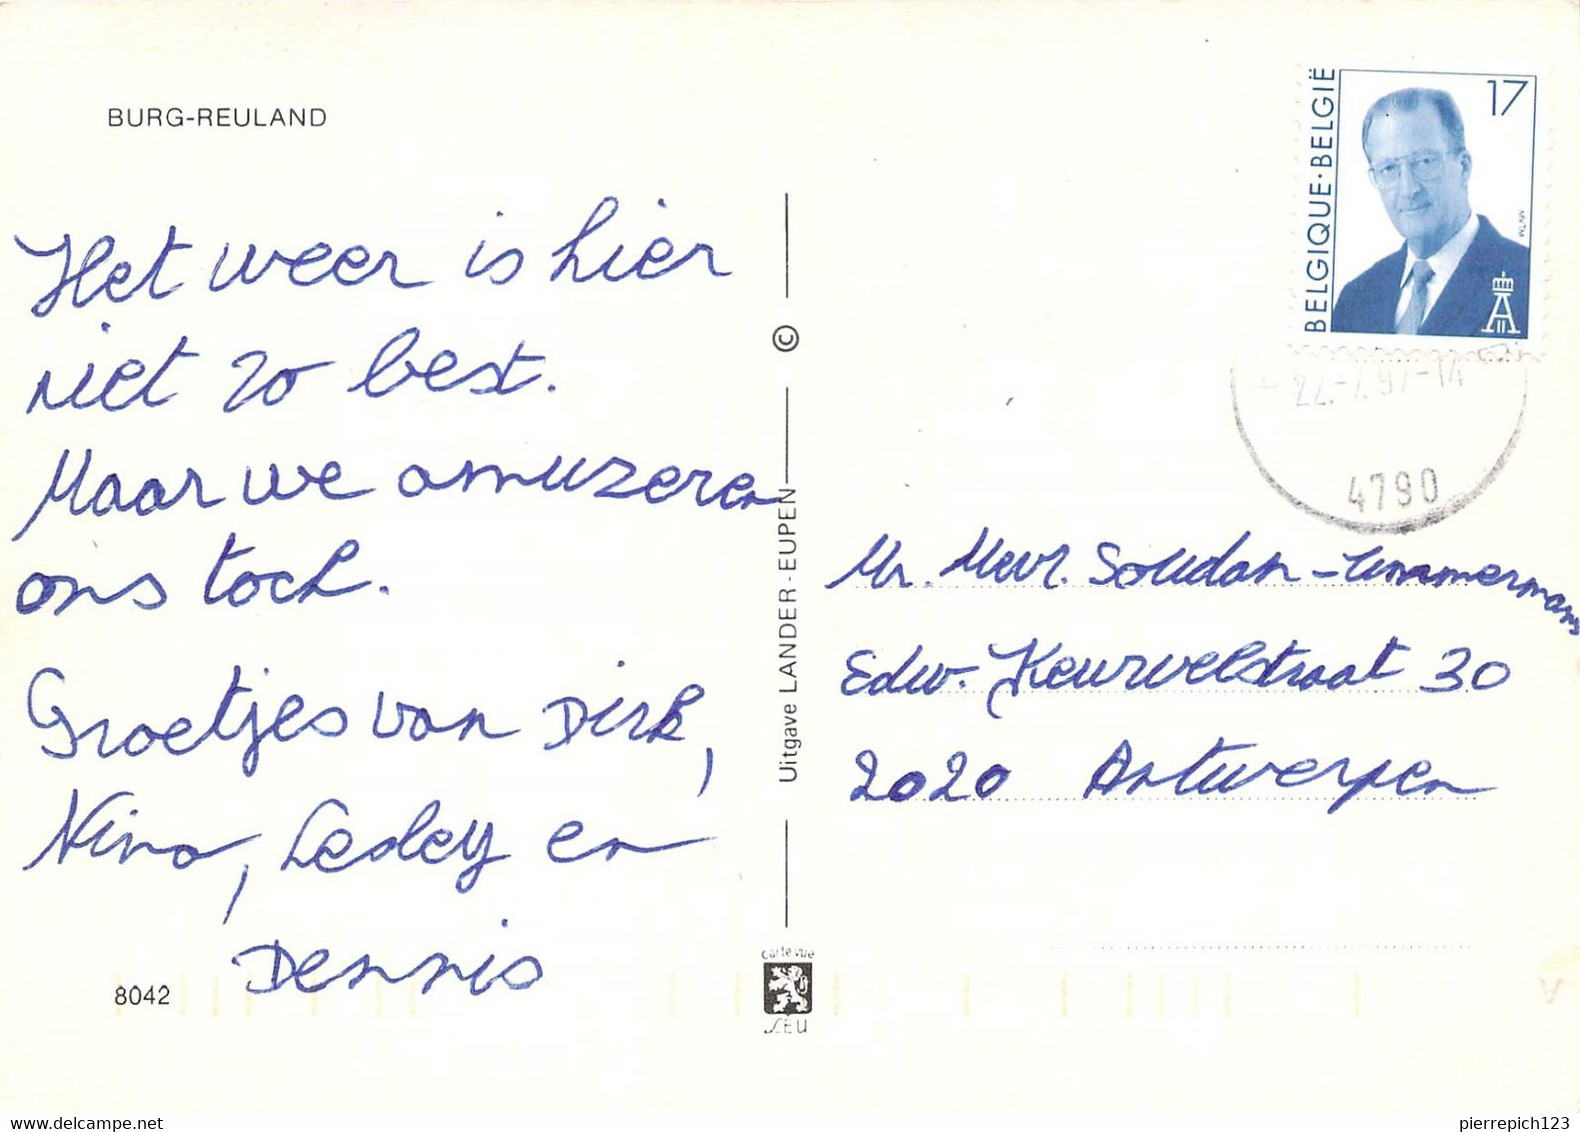 BURG-REULAND
Het weer is hier
niet zo best.
Maar we amuzeren
ons toch.
Groetjes van Dirk,
Nina, Lesley en
Dennis
8042
©
Uitgave LANDER-EUPEN
carte vue
BELGIQUE·BELGIË
17
MVTM
22.-7.97-14
4790
Mr. Mevr. Soudan -
Edw. Keurvelstraat 30
2020 Antwerpen
pierrepich123